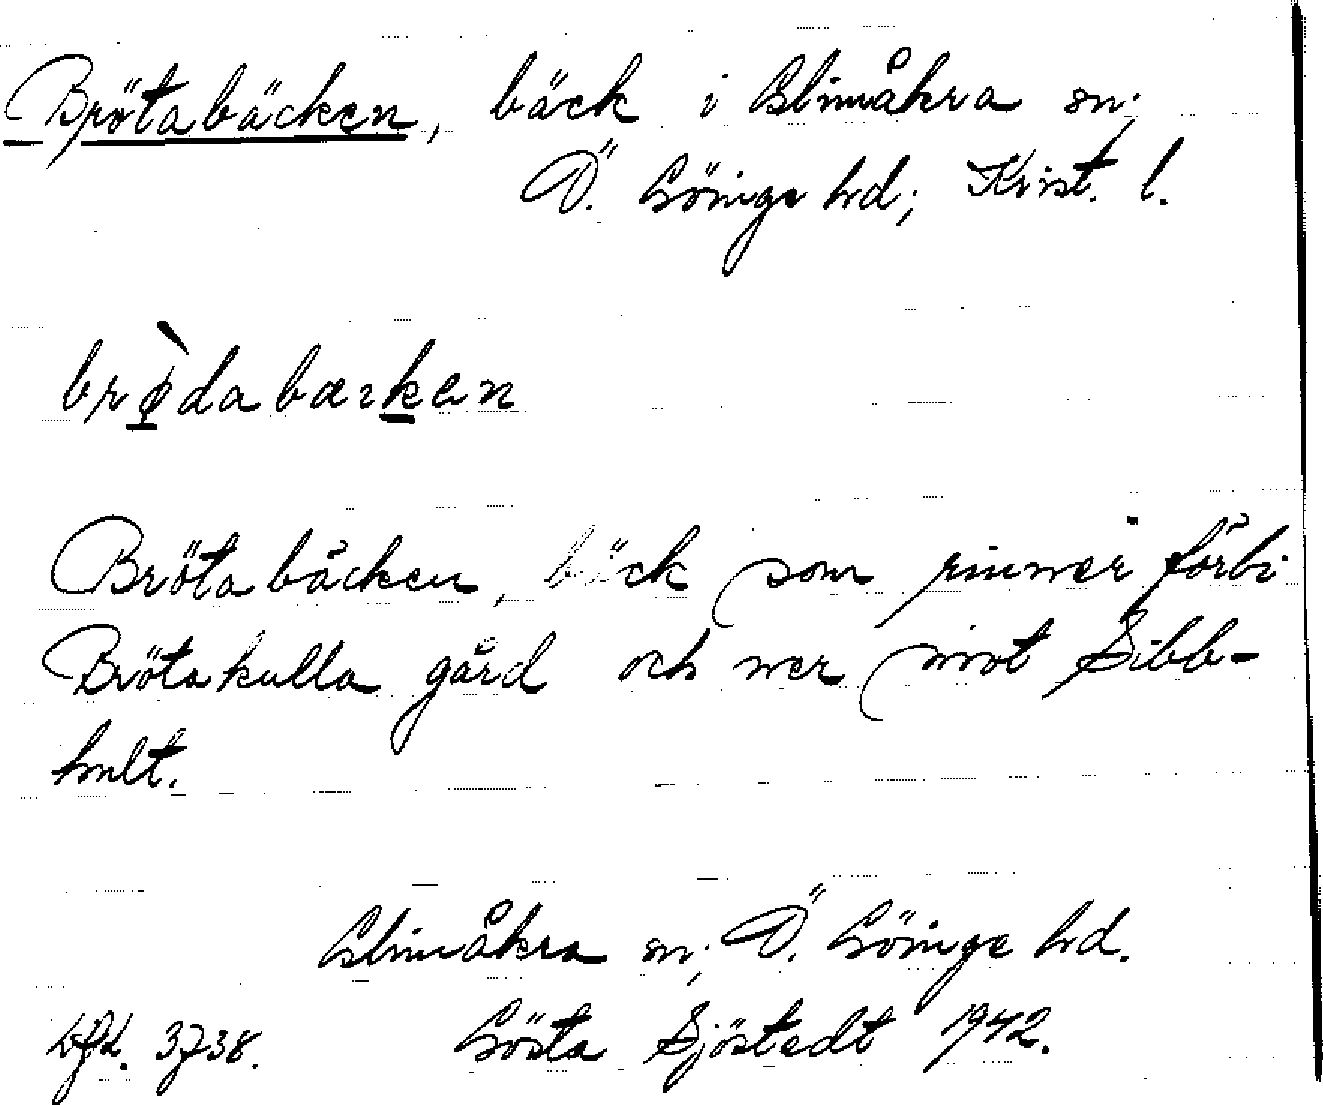 Brötabäcken, bäck i Glimåkra sn;
Ö. Göinge hd; Krist. l.
brø̀dabæken
Brötabäcken, bäck som rinner förbi
Brötakulla gård och ner mot Sibb-
hult.
Glimåkra sn; Ö. Göinge hd.
3738. Gösta Sjöstedt 1942.